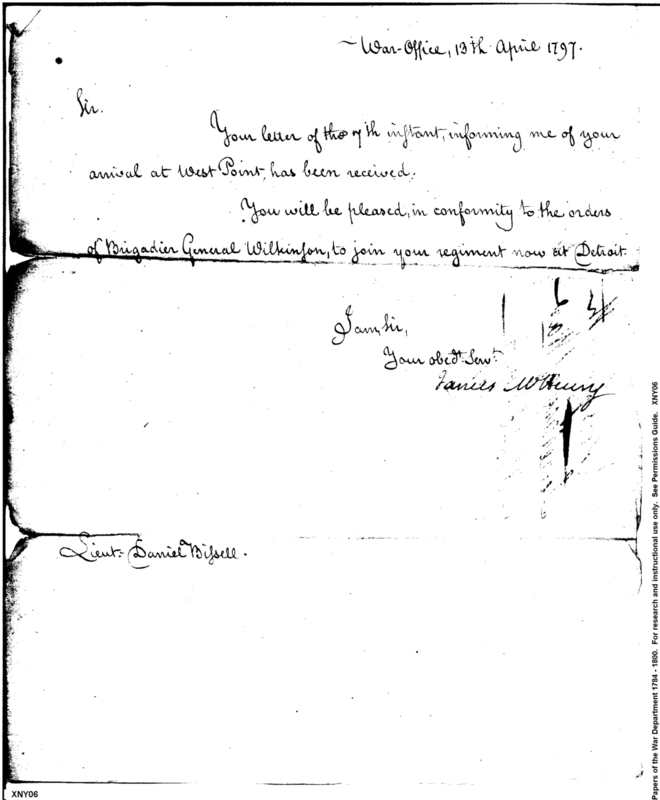 War-Office, 13th April 1797.
Sir.
Your letter of the 7th instant, informing me of your
arrival at West Point, has been received.
You will be pleased, in conformity to the orders
of Brigadier General Wilkinson, to join your regiment now at Detroit.
I am, Sir,
Your obedt. Servt.
James McHenry
Lieut. Daniel Bissell.
XNY06
Papers of the War Department 1784 - 1800. For research and instructional use only. See Permissions Guide. XNY06